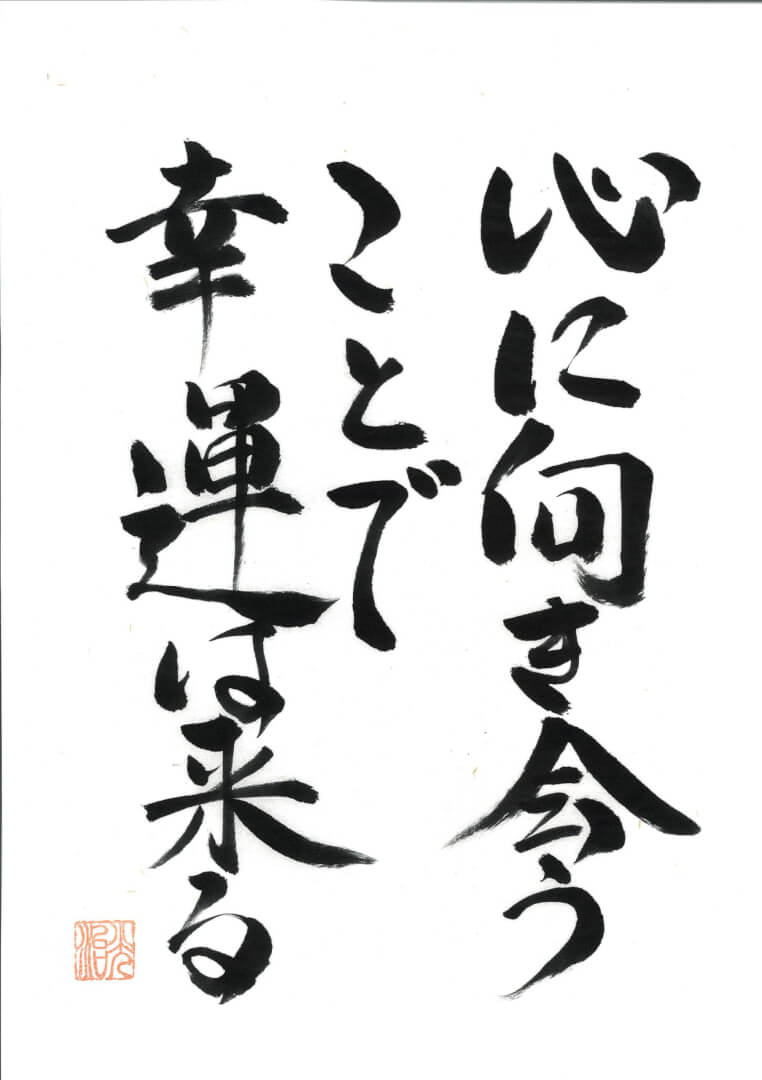 心に向き合う
ことで
幸運は来る